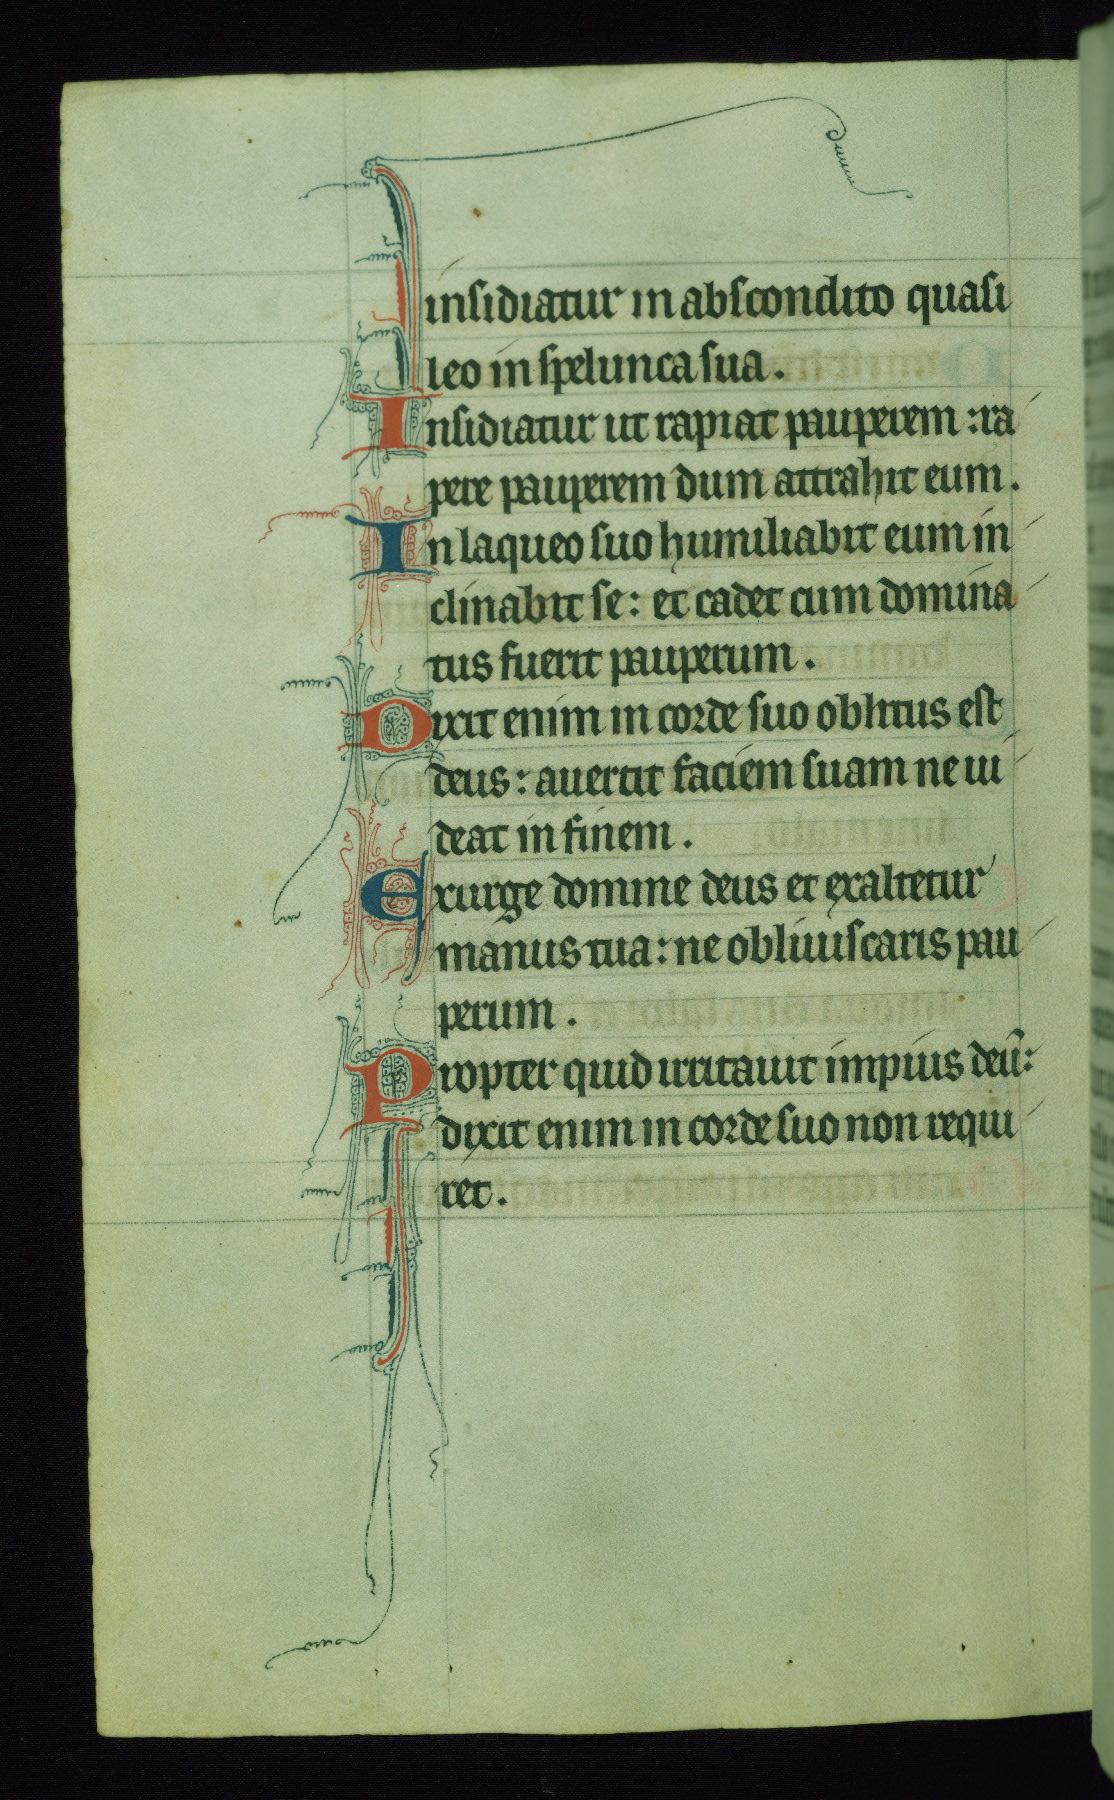 insidiatur in abscondito quasi
leo in spelunca sua.
Insidiatur ut rapiat pauperem: ra
pere pauperem dum attrahit eum.
In laqueo suo humiliabit eum in
clinabit se: et cadet cum domina
tus fuerit pauperum.
Dixit enim in corde suo oblitus est
deus: auertit faciem suam ne ui
deat in finem.
Exurge domine deus et exaltetur
manus tua: ne obliuiscaris pau
perum.
Propter quid irritauit impius deū:
dixit enim in corde suo non requi
ret.